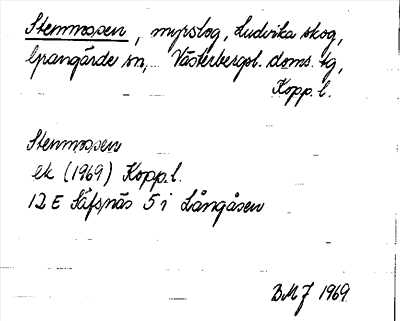 Stenmossen, myrslog, Ludvika skog,
Grangärde sn, Västerbergsl. doms. tg,
Kopp. l.
Stenmossen
ek (1969) Kopp. l.
12 E Säfsnäs 5 i Långåsen
BMJ 1969